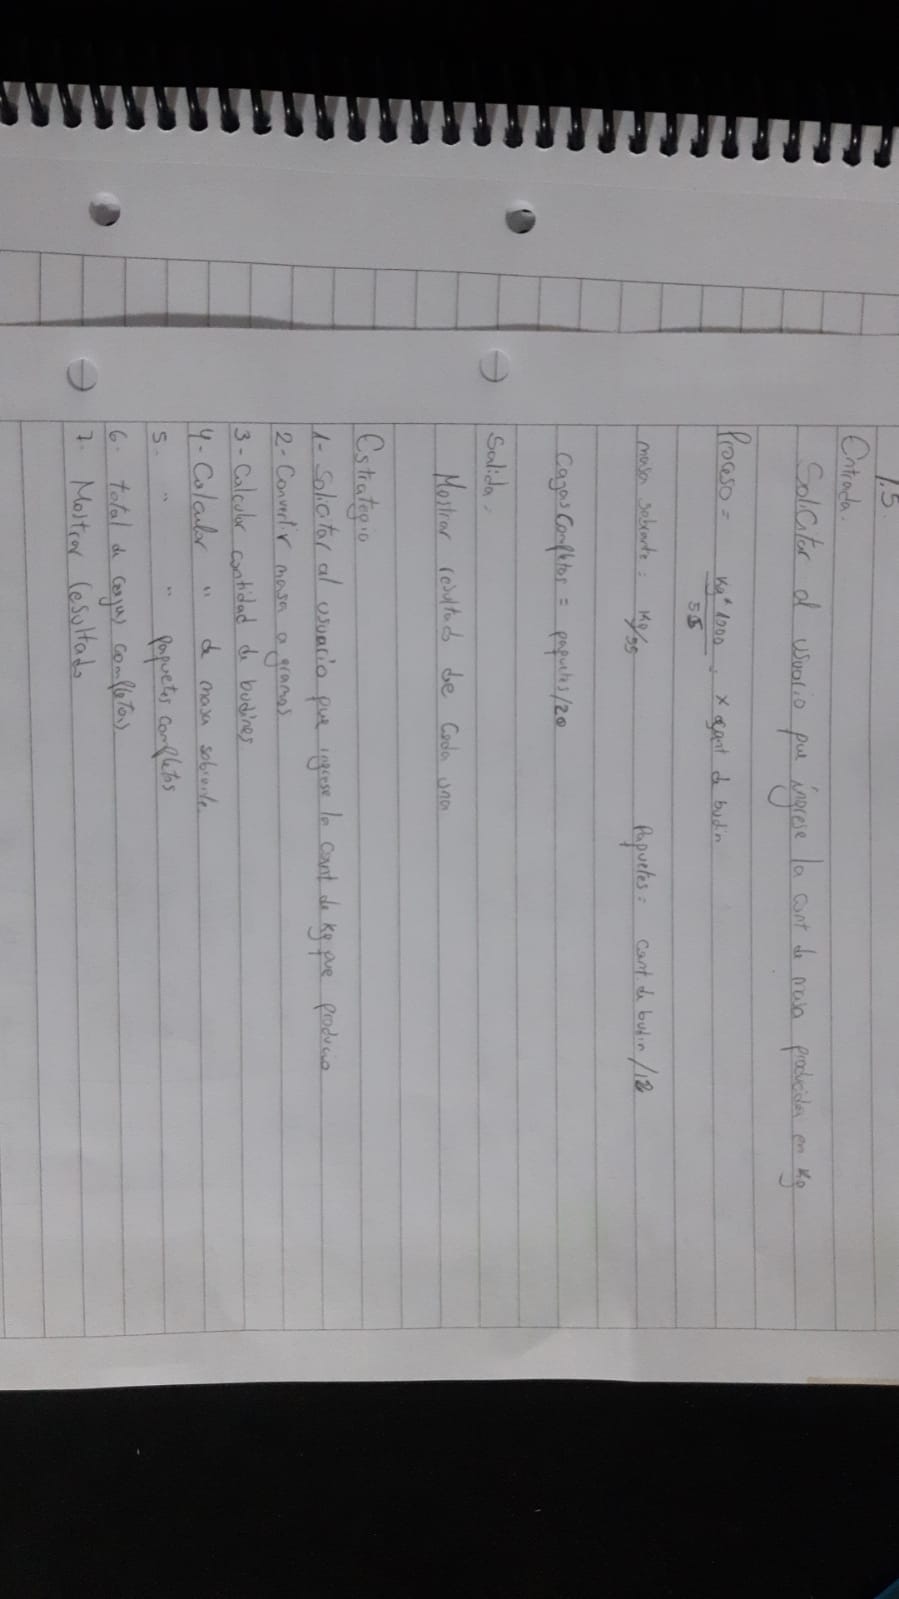 1.5.
Entrada.
Solicitar al usuario que ingrese la cant de masa producida en Kg
Proceso = Kg*1000 / 55 . x cant de budin
masa sobrante: Kg/55 Paquetes = cant de budin/12
Cajas Completas = paquetes/20
Salida.
Mostrar resultado de cada una
Estrategia
1- Solicitar al usuario que ingrese la cant de Kg que produció
2- Convertir masa a gramos
3- Calcular cantidad de budines
4- Calcular " de masa sobrante.
5- " " paquetes completos
6- total de cajas completas
7- Mostrar resultado